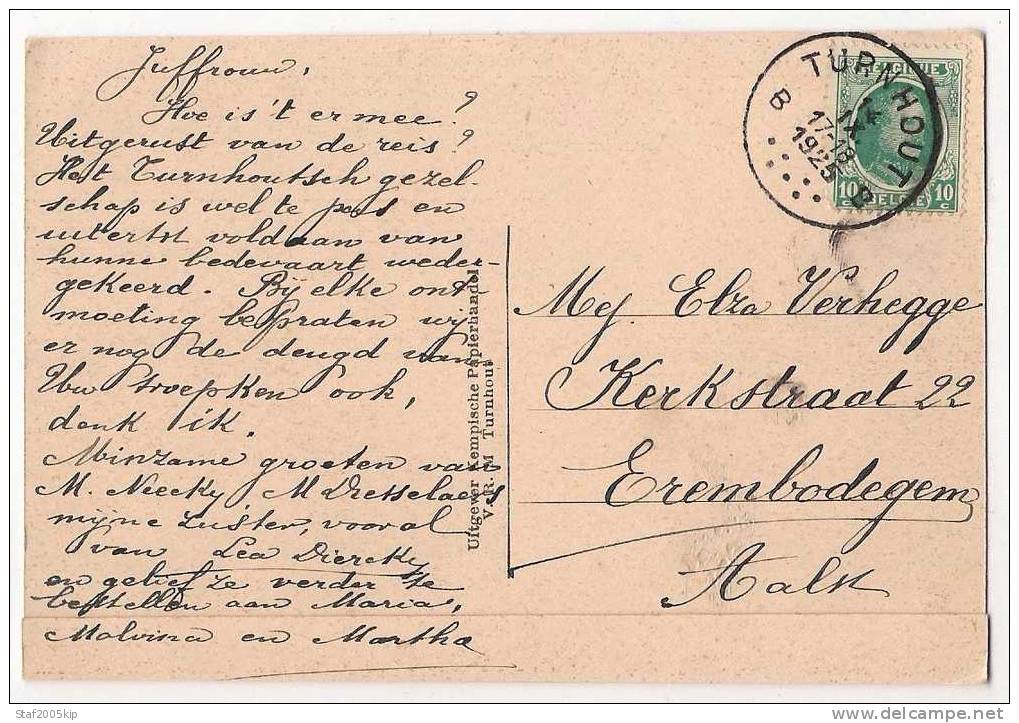 Juffrouw,
Hoe is 't er mee?
Uitgerust van de reis?
Het Turnhoutsch gezel-
schap is wel te pas en
uiterst voldaan van
hunne bedevaart weder-
gekeerd. Bij elke ont-
moeting bespraten wij
er nog de deugd van
Uw troepken ook,
denk ik.
Minzame groeten van
M. Neeckx, M Dresselaers
mijne zuster, vooral
van Lea Dierckx
en gelief ze verder te
bestellen aan Maria,
Malvina en Martha
Uitgever Kempische Papierhandel
V. R. M Turnhout
TURNHOUT
B B
17-18
1925
BELGIQUE
10 c 10 c
BELGIE
Mej. Elza Verhegge
Kerkstraat 22
Erembodegem
Aalst
Staf2005kip
delcampe.net